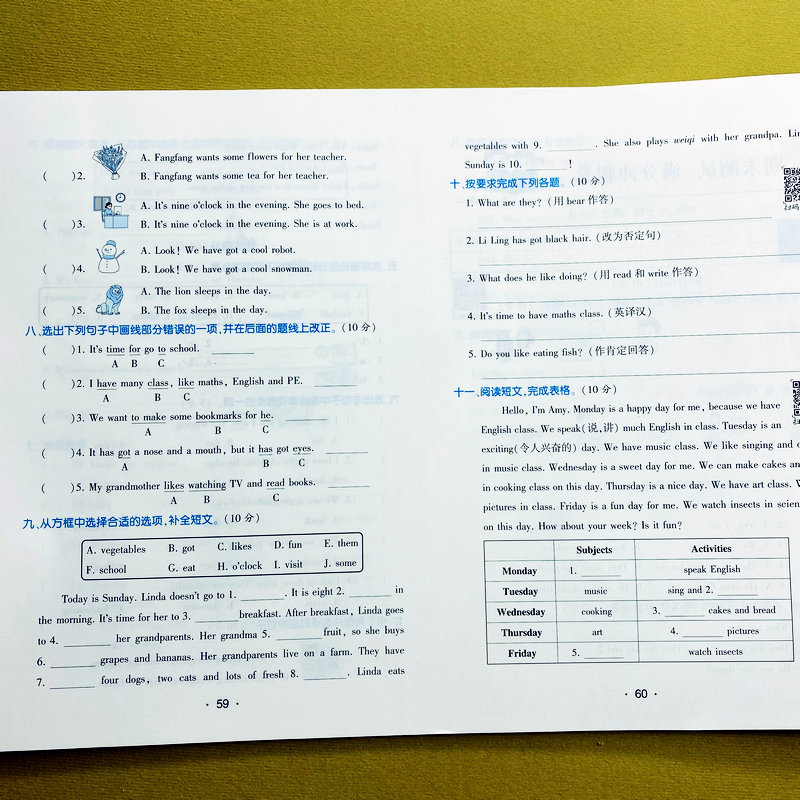 A. Fangfang wants some flowers for her teacher.
( )2. B. Fangfang wants some tea for her teacher.
A. It's nine o'clock in the evening. She goes to bed.
( )3. B. It's nine o'clock in the evening. She is at work.
A. Look! We have got a cool robot.
( )4. B. Look! We have got a cool snowman.
A. The lion sleeps in the day.
( )5. B. The fox sleeps in the day.
八、选出下列句子中画线部分错误的一项,并在后面的题线上改正。(10 分)
( )1. It's time for go to school. ________
A B C
( )2. I have many class, like maths, English and PE. ________
A B C
( )3. We want to make some bookmarks for he. ________
A B C
( )4. It has got a nose and a mouth, but it has got eyes. ________
A B C
( )5. My grandmother likes watching TV and read books. ________
A B C
九、从方框中选择合适的选项,补全短文。(10 分)
A. vegetables B. got C. likes D. fun E. them
F. school G. eat H. o'clock I. visit J. some
Today is Sunday. Linda doesn't go to 1. ________. It is eight 2. ________ in
the morning. It's time for her to 3. ________ breakfast. After breakfast, Linda goes
to 4. ________ her grandparents. Her grandma 5. ________ fruit, so she buys
6. ________ grapes and bananas. Her grandparents live on a farm. They have
7. ________ four dogs, two cats and lots of fresh 8. ________. Linda eats
· 59 ·
vegetables with 9. ________. She also plays weiqi with her grandpa.
Sunday is 10. ________!
十、按要求完成下列各题。(10 分)
1. What are they? (用 bear 作答)
2. Li Ling has got black hair. (改为否定句)
3. What does he like doing? (用 read 和 write 作答)
4. It's time to have maths class. (英译汉)
5. Do you like eating fish? (作肯定回答)
十一、阅读短文,完成表格。(10 分)
Hello, I'm Amy. Monday is a happy day for me, because we have
English class. We speak(说,讲) much English in class. Tuesday is an
exciting(令人兴奋的) day. We have music class. We like singing and
in music class. Wednesday is a sweet day for me. We can make cakes
in cooking class on this day. Thursday is a nice day. We have art class.
pictures in class. Friday is a fun day for me. We watch insects in
on this day. How about your week? Is it fun?
Subjects Activities
Monday 1. ________ speak English
Tuesday music sing and 2. ________
Wednesday cooking 3. ________ cakes and bread
Thursday art 4. ________ pictures
Friday 5. ________ watch insects
· 60 ·